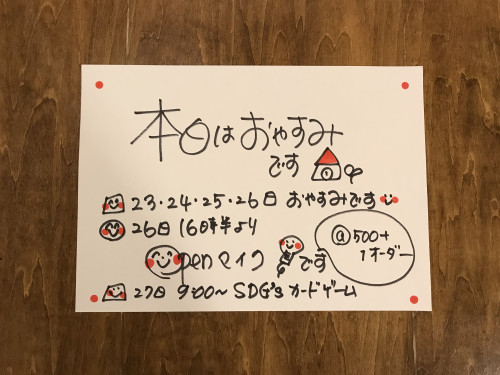 本日はおやすみ
です
23・24・25・26日 おやすみです
26日 16時半より
Openマイク です
@500+
1オーダー
27日 9:00〜 SDG's カードゲーム